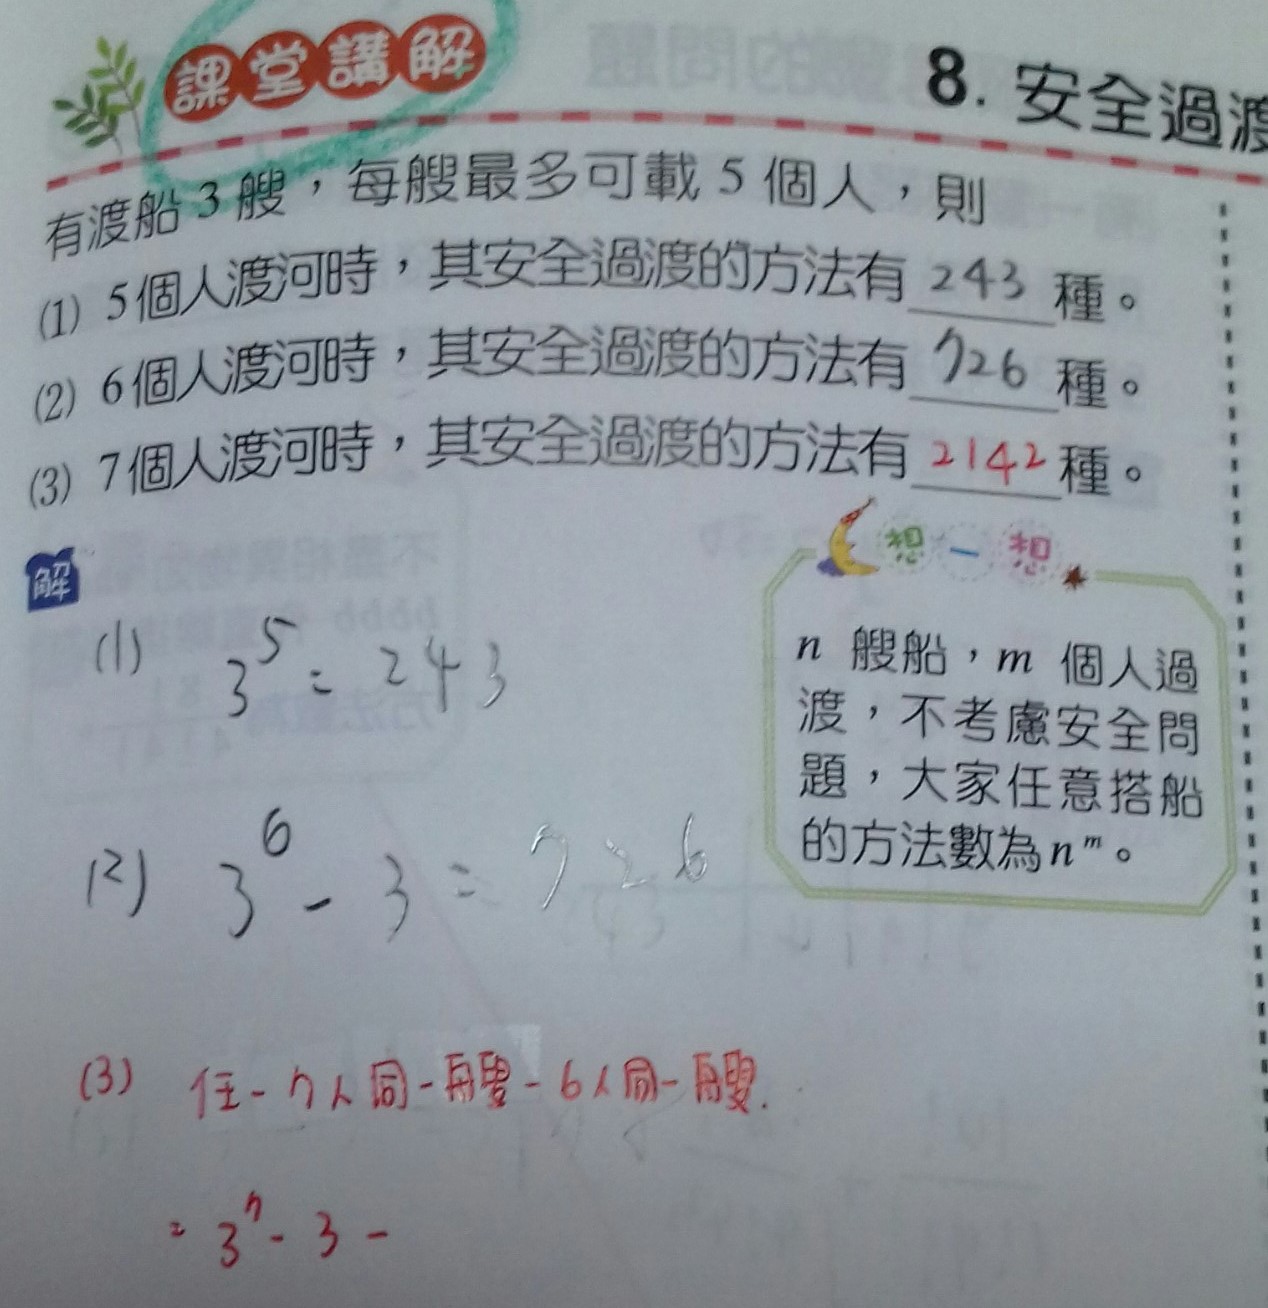 課堂講解
8. 安全過渡
有渡船 3 艘，每艘最多可載 5 個人，則
(1) 5 個人渡河時，其安全過渡的方法有 243 種。
(2) 6 個人渡河時，其安全過渡的方法有 726 種。
(3) 7 個人渡河時，其安全過渡的方法有 2142 種。
想一想
n 艘船，m 個人過
渡，不考慮安全問
題，大家任意搭船
的方法數為 nᵐ。
解
(1) 3⁵ = 243
(2) 3⁶ - 3 = 726
(3) 任 - 7人同一艘 - 6人同一艘.
= 3⁷ - 3 -